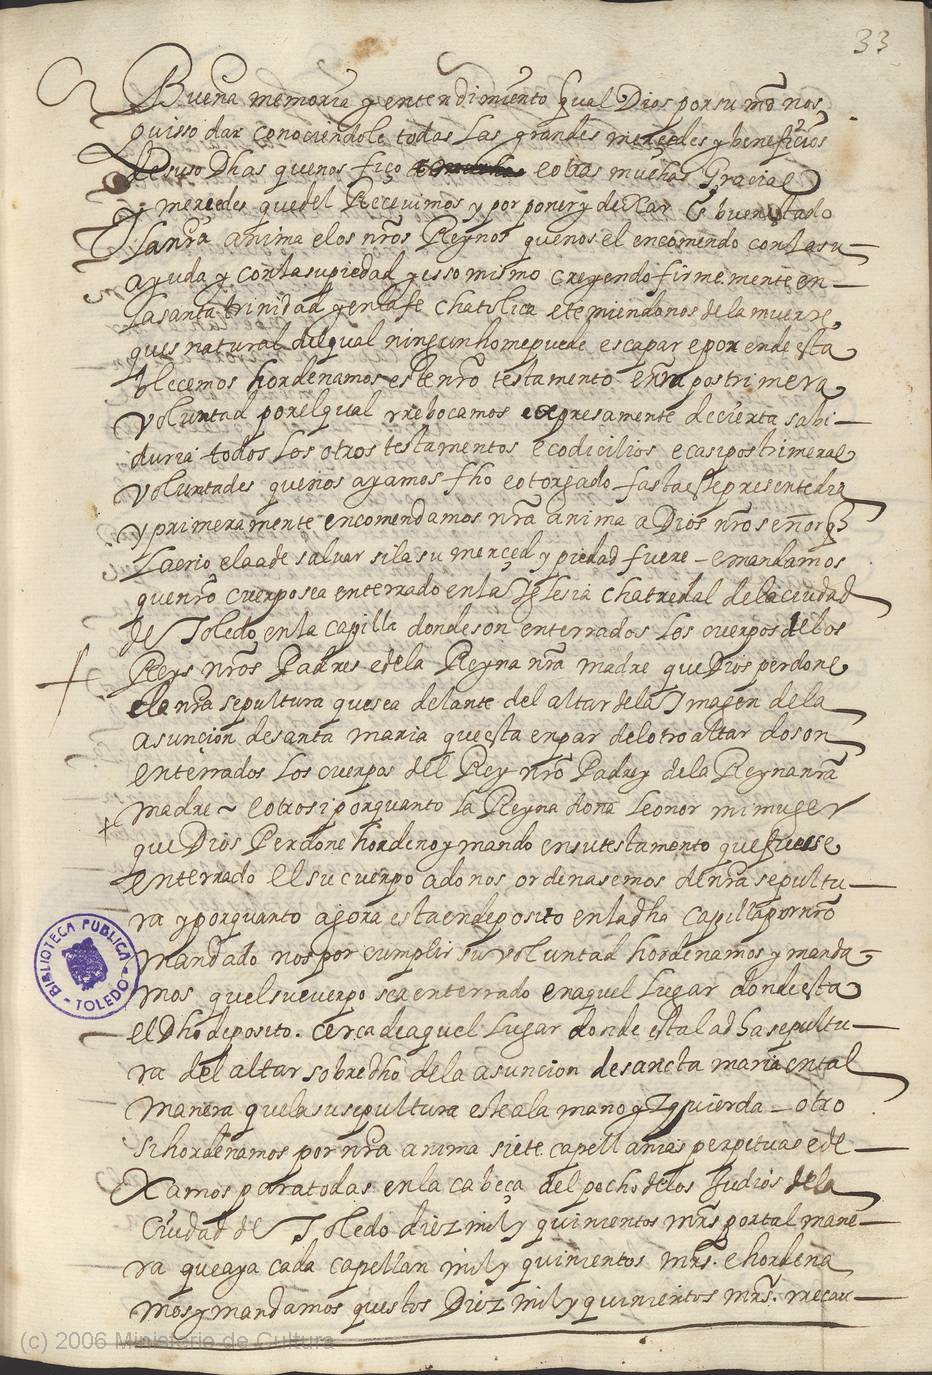 33
Buena memoria y entendimiento qual Dios por su md nos
quisso dar conociendole todas las grandes mercedes y beneficios
de suso Dhas que nos fiço e otras muchas Gracias
y mercedes que del Recevimos y por poner y dexar en buen estado
la nrã anima e los nrõs Reynos que nos el encomendo con la su
ayuda y con la su piedad y esso mismo creyendo firmemente en
la santa trinidad y en la fe chatolica e temiendonos de la muerte
ques natural del qual ningun home puede escapar e por ende esta
blecemos hordenamos este nrõ testamento e nrã postrimera
voluntad por el qual rrebocamos expresamente de cierta sabi
duria todos los otros testamentos e codicilios e casi postrimeras
voluntades que nos ayamos fho e otorgado fasta este presente dia
y primeramente encomendamos nrã anima a Dios nrõ señor q
la crio e la a de salvar si la su merced y piedad fuere – e mandamos
que nrõ cuerpo sea enterrado en la Iglesia chatredal de la ciudad
de Toledo en la capilla donde son enterrados los cuerpos de los
Reys nrõs Padres e de la Reyna nrã madre que Dios perdone
e la nrã sepultura que sea delante del altar de la Imagen de la
asunçion de santa maria que esta en par del otro altar do son
enterrados los cuerpos del Rey nrõ Padre y de la Reyna nrã
madre ~ e otrosi por quanto la Reyna dona Leonor mi muger
que Dios Perdone hordeno y mando en su testamento que fuesse
enterrado el su cuerpo a do nos ordenasemos de nrã sepultu
ra y por quanto agora esta en deposito en la dha capilla por nrõ
mandado nos por cumplir su voluntad hordenamos y manda
mos quel su cuerpo sea enterrado en aquel lugar donde esta
el Dho deposito. cerca de aquel lugar donde esta la dha sepultu
ra del altar sobredho de la asuncion de sancta maria en tal
manera que la su sepultura este a la mano yzquierda – otro
si hordenamos por nrã anima siete capellanias perpetuas e de
xamos para todas en la cabeça del pecho de los Judios de la
ciudad de Toledo diez mil y quinientos mrs por tal mane
ra que aya cada capellan mil y quinientos mrs. e hordena
mos y mandamos questos Diez mil y quinientos mrs. rrecau
BIBLIOTECA PUBLICA - TOLEDO -
(c) 2006 Ministerio de Cultura